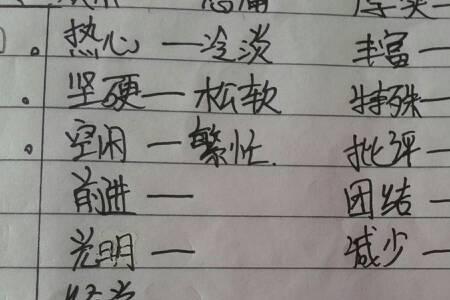 热心—冷淡 丰富—
坚硬—松软 特殊—
空闲—繁忙 批评—
前进— 团结—
光明— 减少—